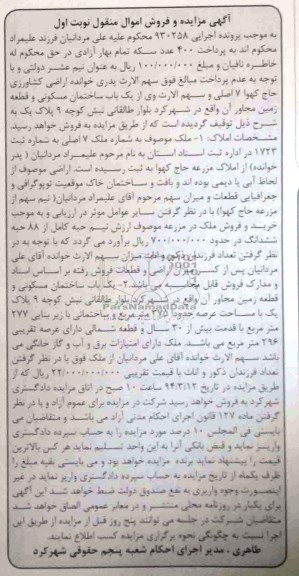 آگهی مزایده و فروش اموال منقول نوبت اول
به موجب پرونده اجرایی ۹۳۰۲۵۸ محکوم علیه علی مردانیان فرزند علیمراد
محکوم اند به پرداخت ۴۰۰ عدد سکه تمام بهار آزادی در حق محکوم له
خاطره نافیان و مبلغ ۱۰۰/۰۰۰/۰۰۰ ریال به عنوان نیم عشر دولتی و با
توجه به عدم پرداخت مبالغ فوق سهم الارث پدری خوانده اراضی کشاورزی
حاج کهوا ۷ اصلی و سهم الارث وی از یک باب ساختمان مسکونی و قطعه
زمین مجاور آن واقع در شهرکرد بلوار طالقانی نبش کوچه ۹ پلاک یک به
شرح ذیل توقیف گردیده است که از طریق مزایده به فروش خواهد رسید.
مشخصات املاک: ۱- ملک موصوف به شماره ملک ۷ اصلی به شماره ثبت
۱۷۲۳ در اداره ثبت اسناد استان به نام مرحوم علیمراد مردانیان ( پدر
خوانده) از املاک مزرعه حاج کهوا به ثبت رسیده است. اراضی موصوف از
لحاظ آبی یا دیمی بوده اند و بافت و ساختمان خاک موقعیت توپوگرافی و
جغرافیایی قطعات و میزان سهم مرحوم آقای علیمراد مردانیان( نیم سهم از
مزرعه حاج کهوا) با در نظر گرفتن سایر عوامل موثر در ارزیابی و به موجب
خرید و فروش ملک در مزرعه موصوف ارزش نیم حبه کامل از ۸۸ حبه
ششدانگ در حدود ۷۰۰/۰۰۰/۰۰۰ ریال برآورد می گردد که با توجه به در
نظر گرفتن تعداد فرزندان ذکور و اناث میزان سهم الارث خوانده آقای علی
مردانیان پس از کسر اراضی و قطعات فروش رفته بر اساس اسناد
و مدارک فروش قابل محاسبه می باشد ۲- یک باب ساختمان مسکونی و
قطعه زمین مجاور آن واقع در شهرکرد بلوار طالقانی نبش کوچه ۹ پلاک
یک با مساحت عرصه حدودا ۳۷۵ متر مربع و ساختمانی با زیر بنایی ۲۷۷
متر مربع با قدمت بیش از ۳۰ سال و قطعه شمالی دارای عرصه تقریبی
۳۹۶ متر مربع می باشد. ملک دارای امتیازات برق و آب و گاز خانگی می
باشد سهم الارث خوانده آقای علی مردانیان از ملک فوق با در نظر گرفتن
تعداد فرزندان ذکور و اناث با قیمت تقریبی ۲۲/۰۰۰/۰۰۰/۰۰۰ ریال که از
طریق مزایده در تاریخ ۹۴/۳/۱۲ ساعت ۱۰ صبح در اتاق مزایده دادگستری
شهرکرد به فروش خواهد رسید شرکت در مزایده برای عموم آزاد و با در نظر
گرفتن ماده ۱۲۷ قانون اجرای احکام مدنی آزاد می باشد و متقاضیان می
بایستی فی المجلس ۱۰ درصد مورد مزایده را به حساب سپرده دادگستری
واریز نماید و فیش بانکی آنرا به این واحد تسلیم نماید هر کس بالاترین
قیمت را پیشنهاد نماید برنده مزایده خواهد بود و می بایستی بقیه مبلغ را
ظرف یکماه از تاریخ مزایده به حساب سپرده دادگستری واریز نماید در غیر
اینصورت وجوه واریزی به نفع صندوق دولت ضبط خواهد شد این آگهی
برای یکبار در روزنامه محلی منتشر و در معابر عمومی الصاق خواهد شد
متقاضیان شرکت در جلسه می توانند پنج روز قبل از مزایده از طریق این
اجرا نسبت به چگونگی نحوه برگزاری مزایده کسب اطلاع نمایند.
طاهری ، مدیر اجرای احکام شعبه پنجم حقوقی شهرکرد